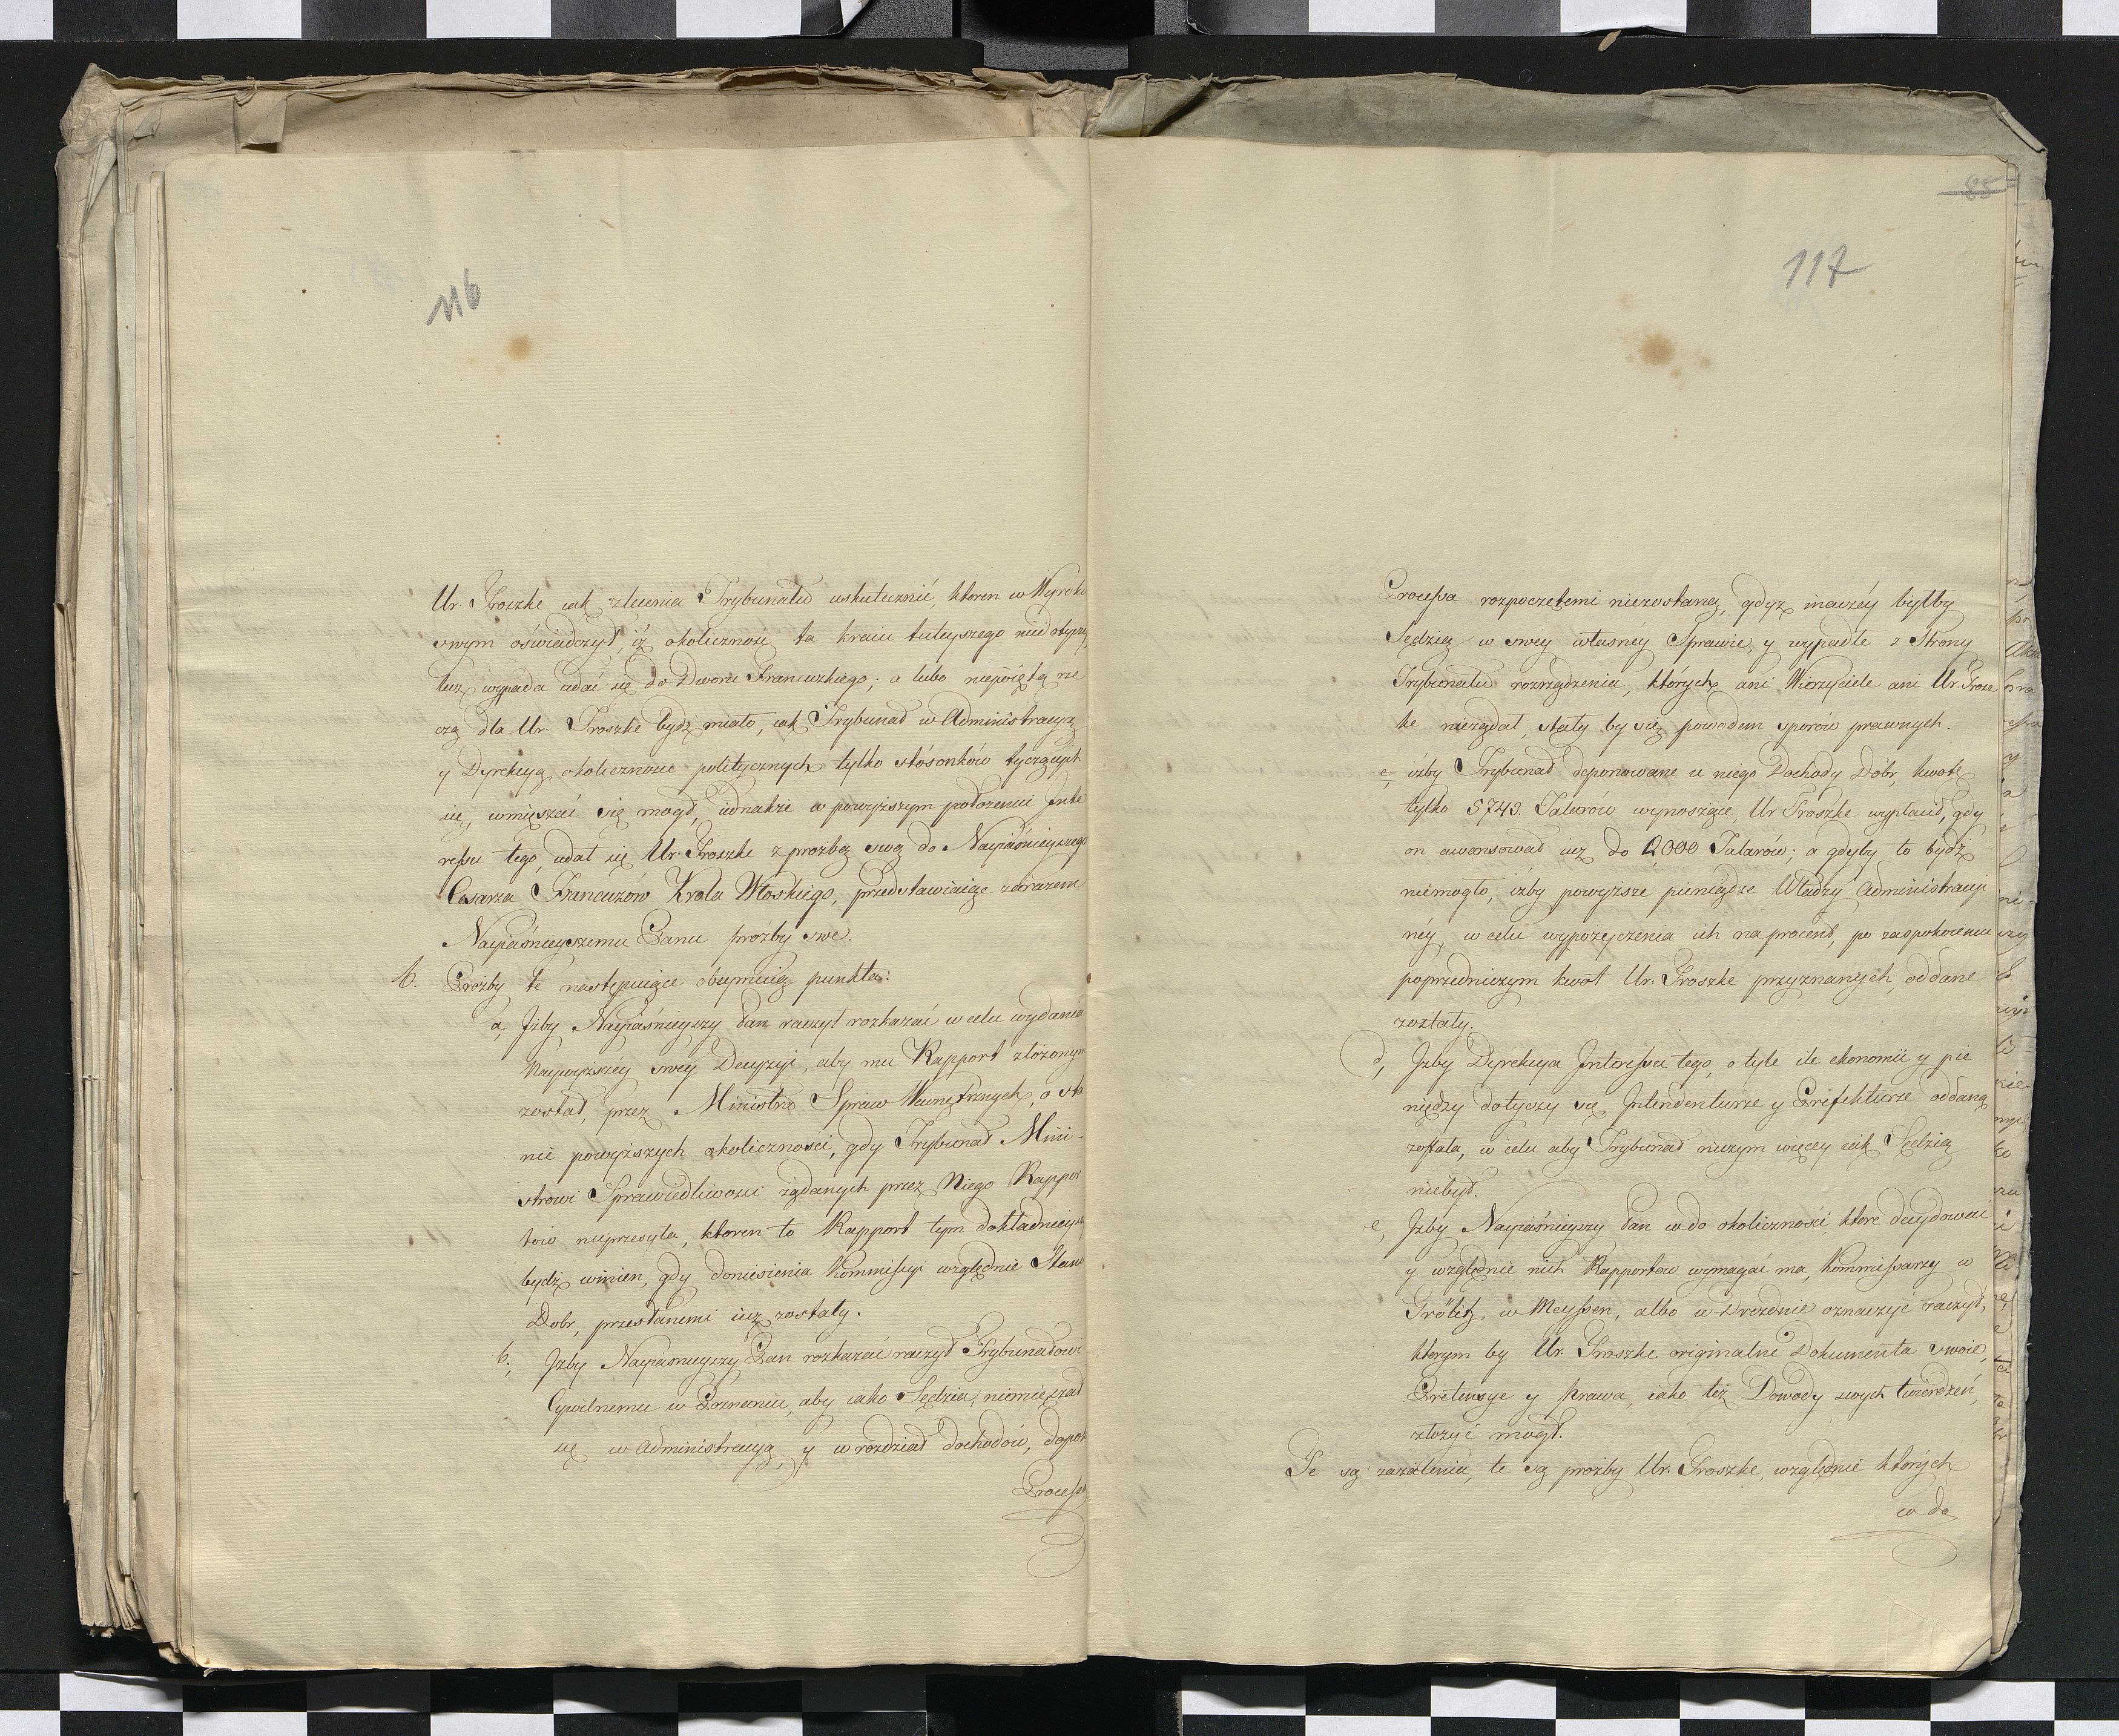 116
Ur. Troszke iak zlecenia Trybunału uskutecznić, ktoren w Wyroku
swym oświadczył, iż okoliczność ta kraiu tuteyszego niedotyczy,
lecz wypada udać się do Dworu Francuzkiego; a lubo niepoiętą rze
czą dla Ur. Troszke bydź miało, iak Trybunał w Administracyą
y Dyrekcyą, okoliczności politycznych tylko stósonków tyczących
się, wmięszać się mogł, iednakże w powyższym położeniu Inte
ressu tego, udał się Ur. Troszke z prożbą swą do Nayiaśnieyszego
Cesarza Francuzów Krola Włoskiego, przedstawiaiąc zarazem
Nayiaśnieyszemu Panu prożby swe.
6. Prożby te następuiące obeymuią punkta:
a, Jżby Nayiaśnieyszy Pan raczył rozkazać w celu wydania
Naywyższéy swey Decyzyi, aby mu Rapport złożonym
został, przez Ministra Spraw Wewnętrznych, o sta
nie powyższych okoliczności, gdy Trybunał Mini-
strowi Sprawiedliwości żądanych przez Niego Rappor
tow nieprzesyła, ktoren to Rapport tym dokładnieyszy
bydź winien, gdy doniesienia Kommissyi względnie Stanu
Dobr, przesłanemi iuż zostały.
b, Jżby Nayiaśnieyszy Pan rozkazać raczył Trybunałowi
Cywilnemu w Poznaniu, aby iako Sędzia, niemięszał
się w Administracyą, y w rozdział dochodów, dopok
Processa
85
117
Processa rozpoczętemi niezostaną, gdyż inaczéy byłby
Sędzią w swéy własnéy Sprawie, y wypadłe z Strony
Trybunału rozrządzenia, których ani Wierzyciele ani Ur. Trosz
ke nieżądał, stały by się powodem sporów prawnych.
c, iżby Trybunał deponowane u niego Dochody Dóbr, kwotę
tylko 5743. Talarów wynoszące, Ur Troszke wypłacił, gdy
on awansował iuż do 2,000 Talarów; a gdyby to bydź
niemogło, iżby powyższe pieniądze Władzy Administracyi
néy, w celu wypożyczenia ich na procent, po zaspokoieniu
poprzedniczym kwot Ur. Troszke przyznanych, oddane
zostały.
d, Jżby Dyrekcya Interessu tego, o tyle ile ekonomii y pie
niędzy dotyczy się, Intendenturze y Prefekturze oddaną
została, w celu aby Trybunał niczym więcey iak Sędzią
niebył.
e, Jżby Nayiaśnieyszy Pan w do okoliczności, które decydować
y względnie nich Rapportów wymagać ma, Kommissarzy w
Grölitz, w Meyssen, albo w Dreznie oznaczyć raczył,
ktorym by Ur. Troszke originalne Dokumenta swoie,
Pretensye y prawa, iako też Dowody swych twierdzeń,
złożyć mogł.
Te są zażalenia, te są prożby Ur. Troszke, względnie których
w do